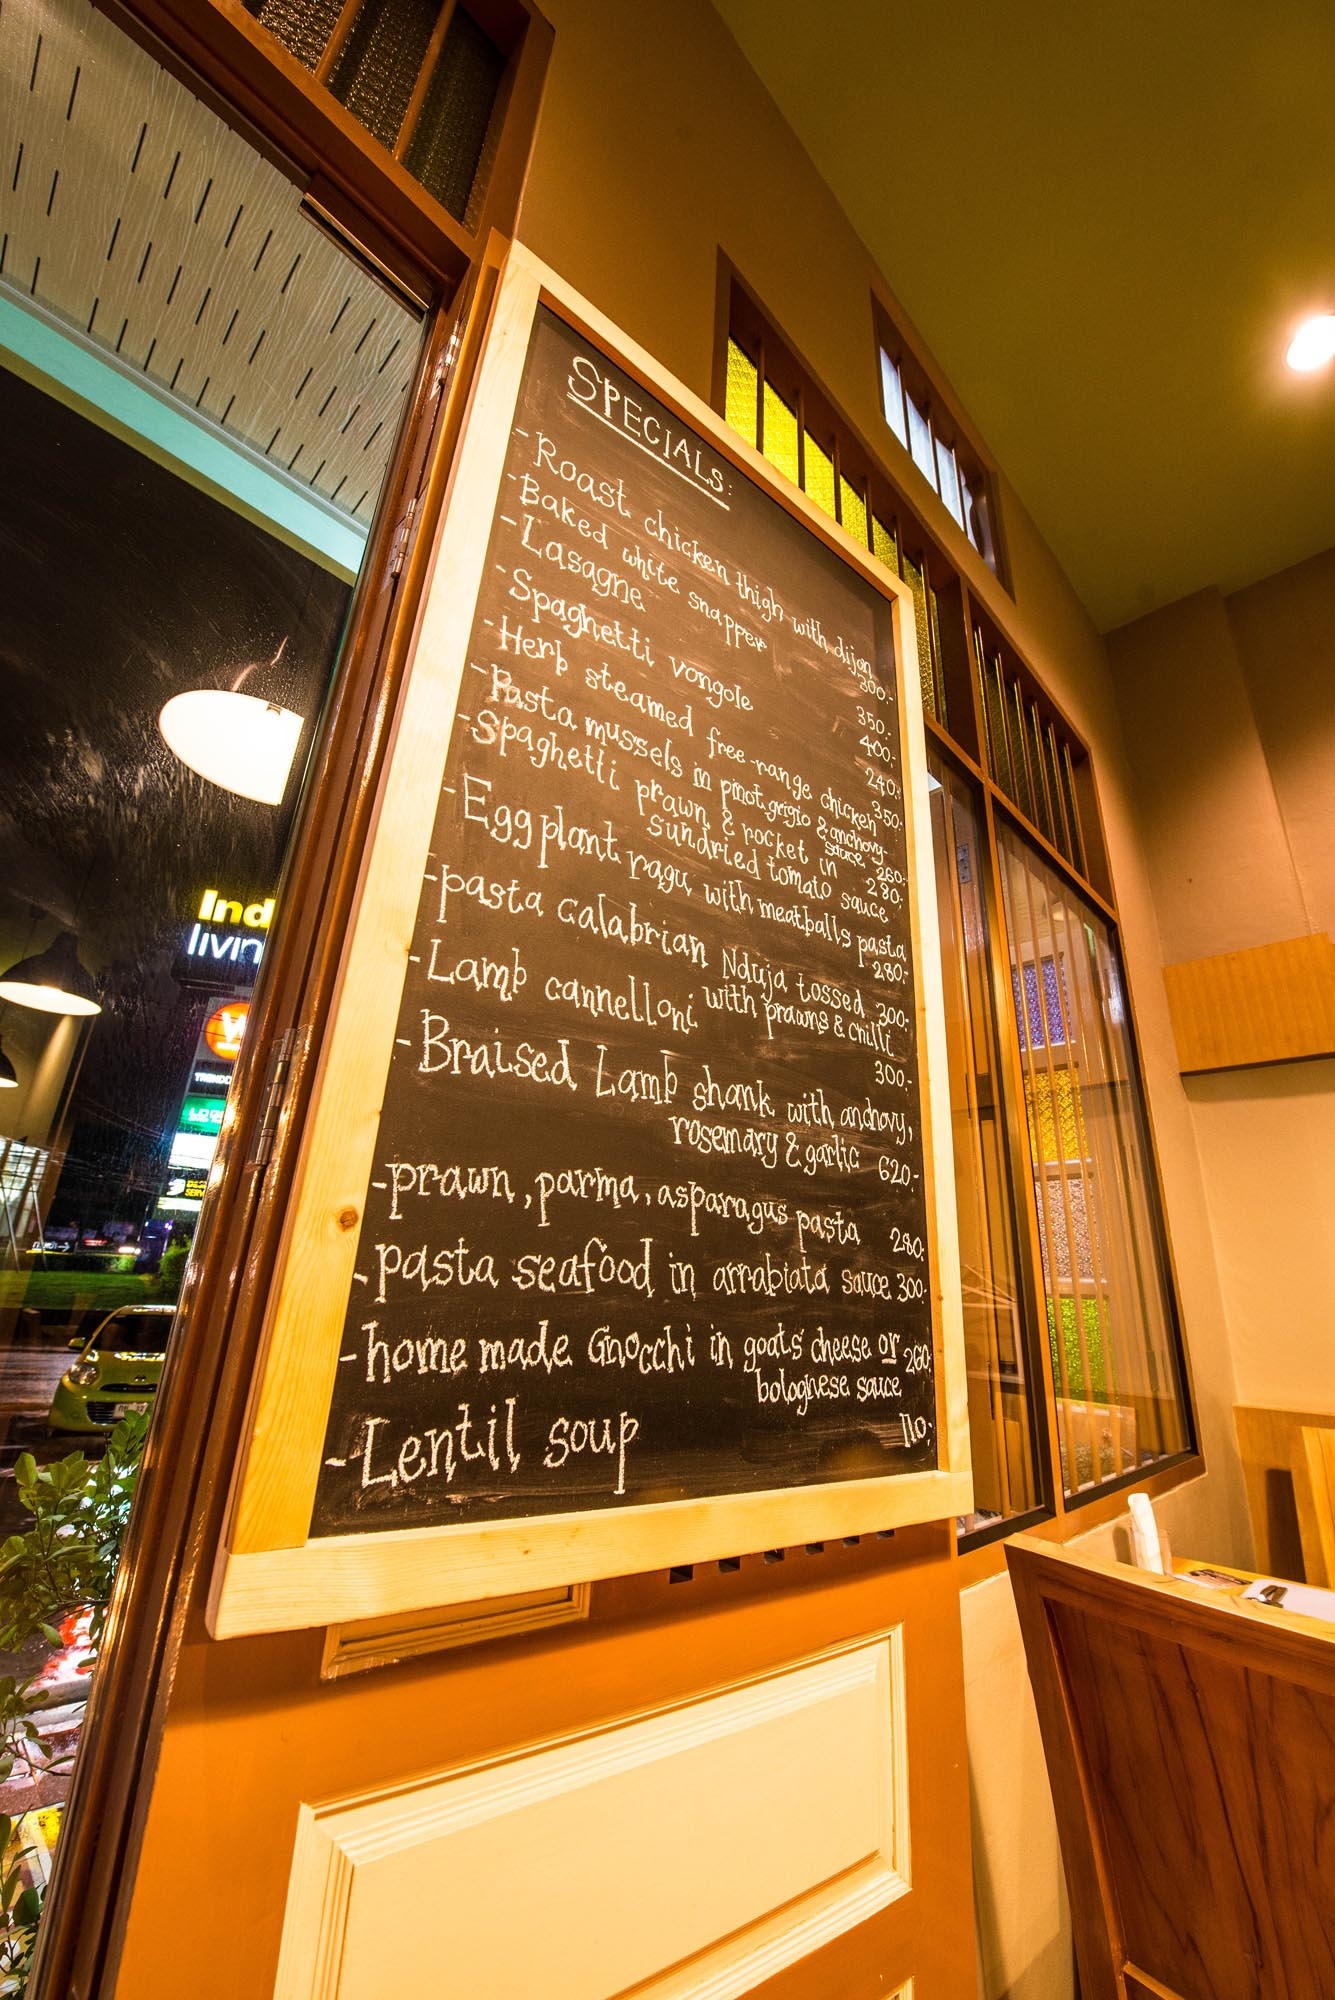 SPECIALS:
- Roast chicken thigh with dijon 300.-
- Baked white snapper 350.-
- Lasagne 400.-
- Spaghetti vongole 240.-
- Herb steamed free-range chicken 350.-
- Pasta mussels in pinot grigio & anchovy
sauce 260.-
- Spaghetti prawn & rocket in 280.-
sundried tomato sauce
- Eggplant ragu with meatballs pasta
280.-
- pasta calabrian Nduja tossed 300.-
with prawns & chilli
- Lamb cannelloni 300.-
- Braised Lamb shank with anchovy,
rosemary & garlic 620.-
- prawn, parma, asparagus pasta 280.-
- pasta seafood in arrabiata sauce 300.-
- home made Gnocchi in goats cheese or 260.-
bolognese sauce
- Lentil soup 110.-
Ind
livin